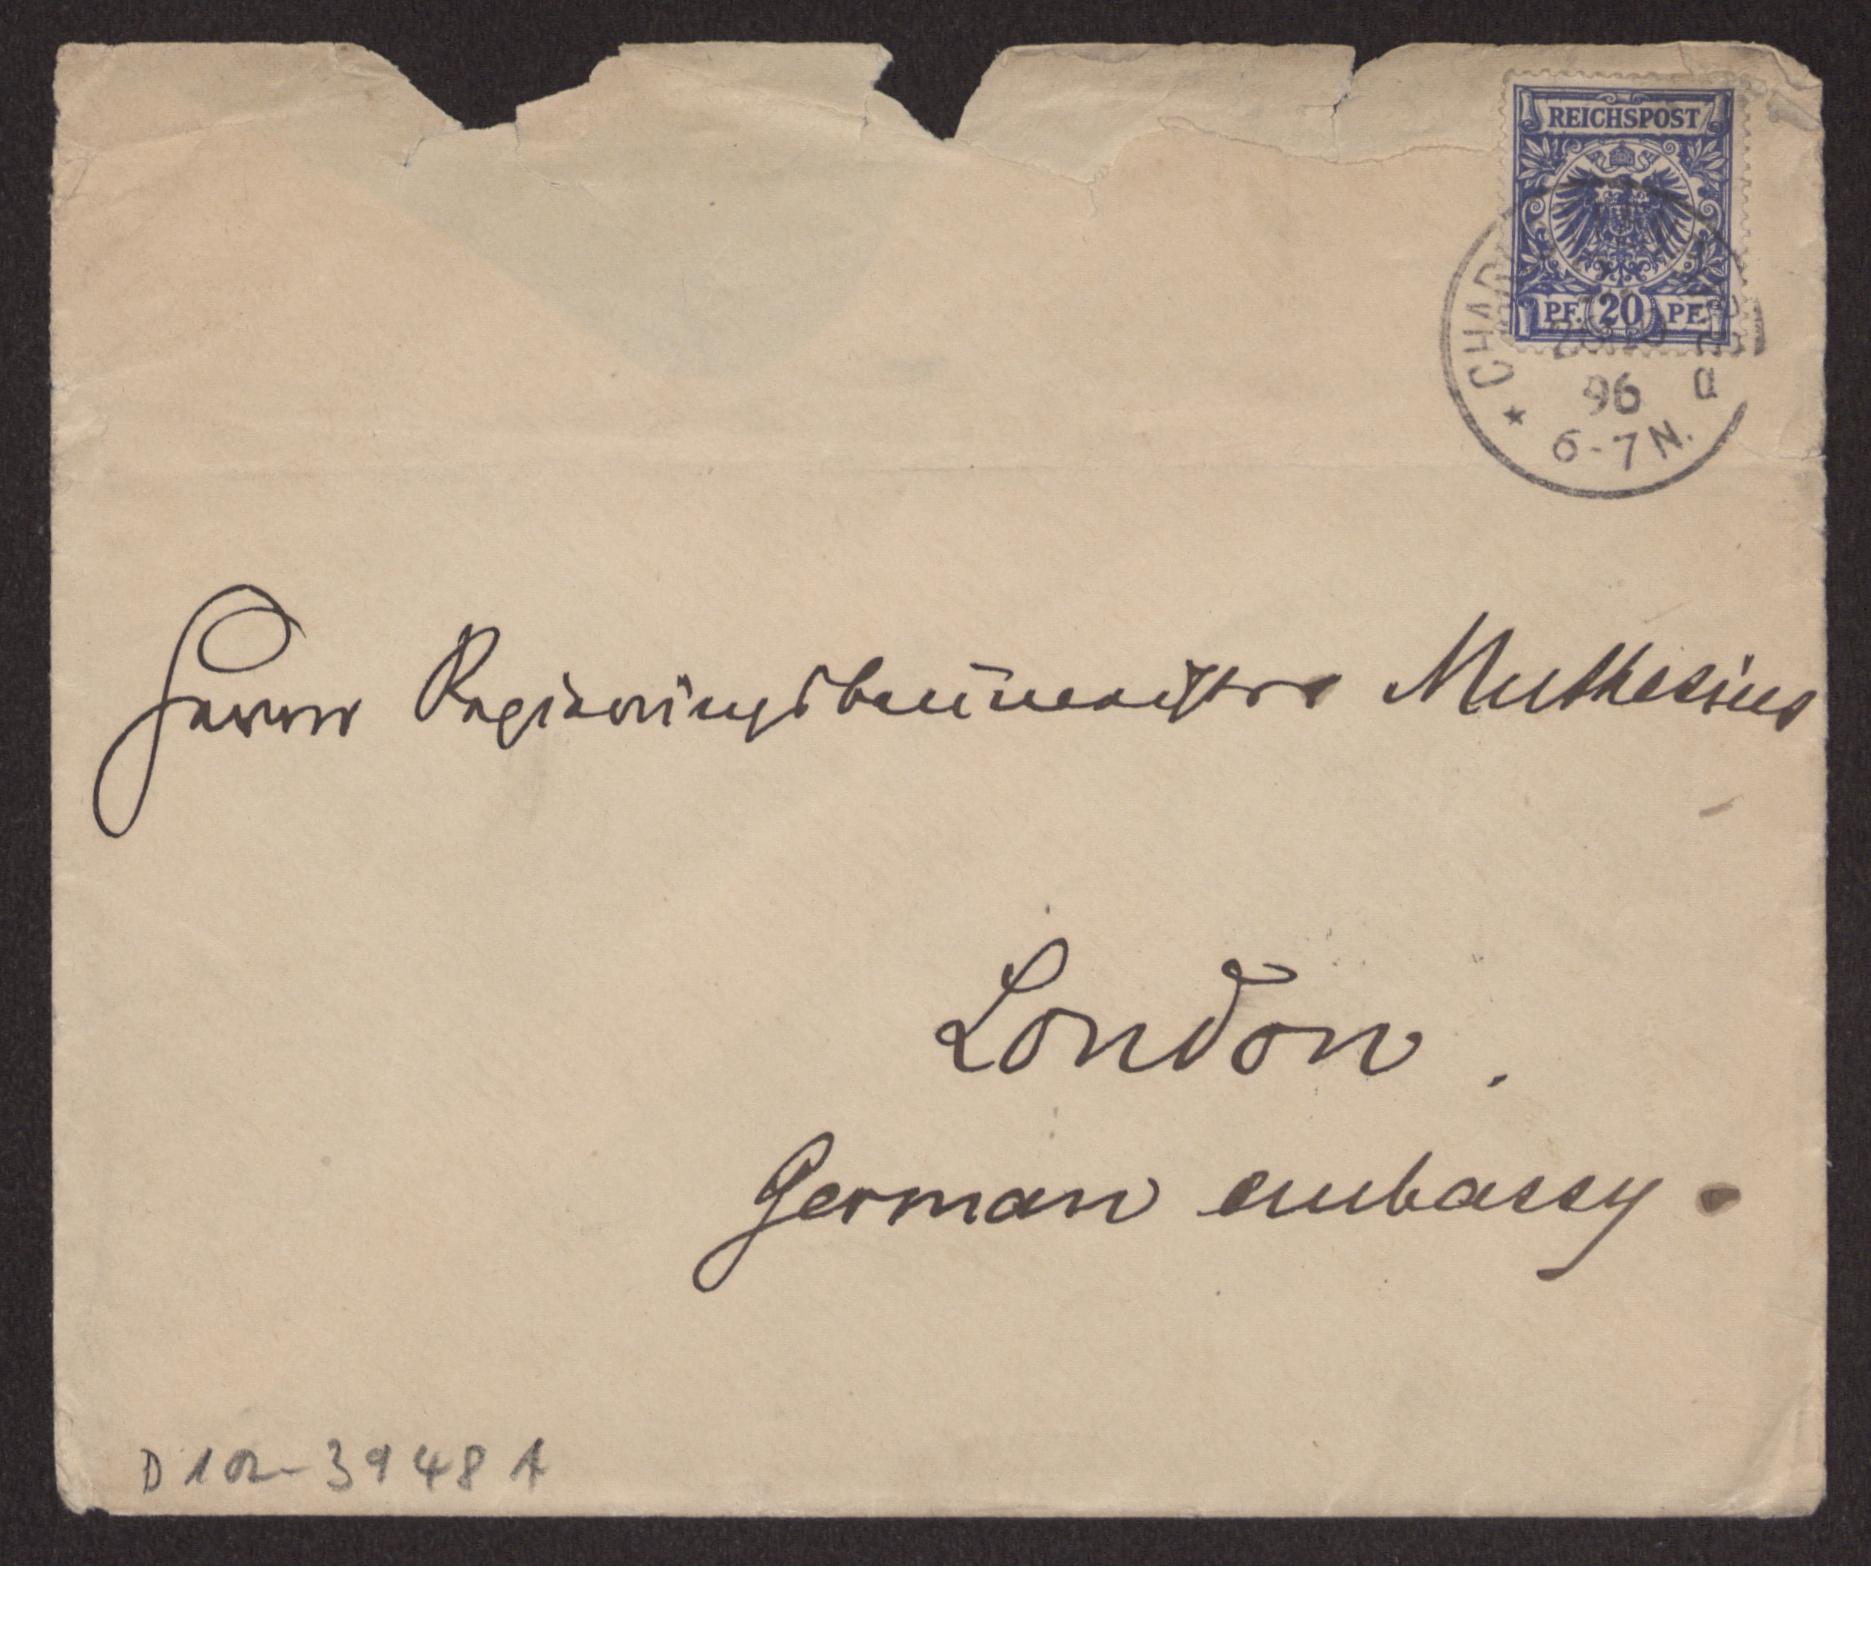 REICHSPOST
PF. 20 PF.
96 a
6-7 N.
Herrn Regierungsbaumeister Muthesius
London.
German embassy.
D 102-3948 A